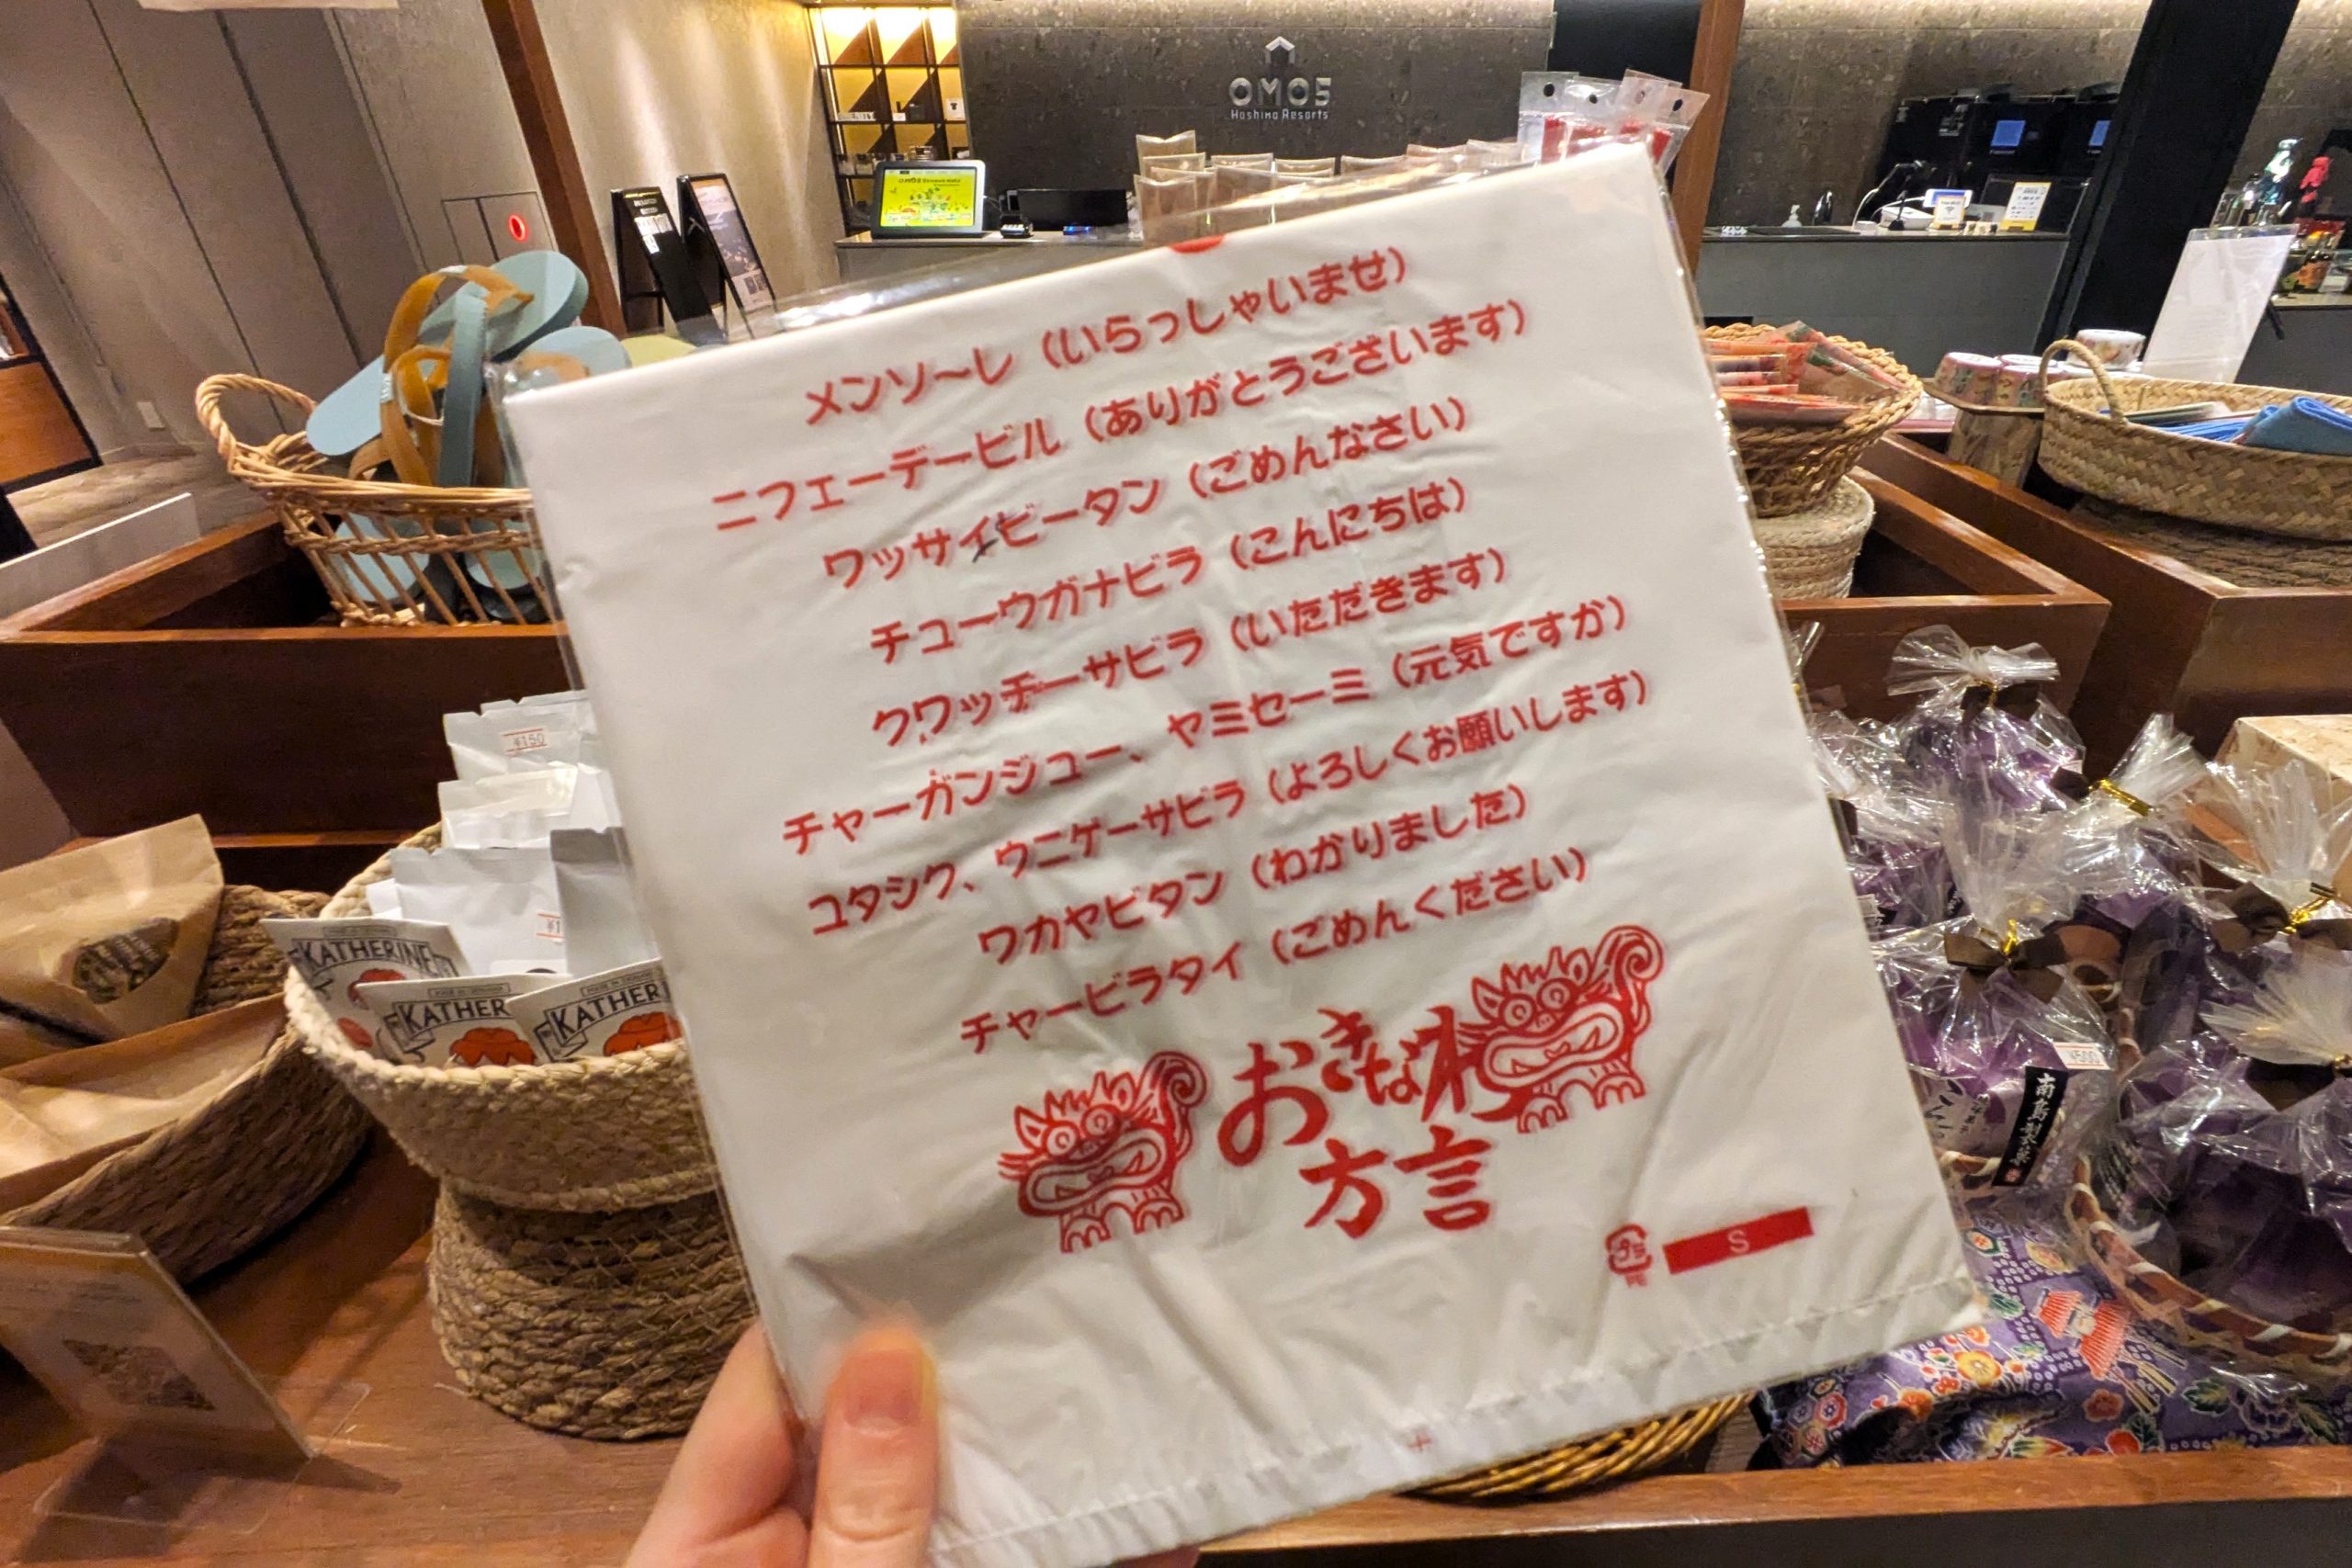 OMO5
Hoshino Resorts
メンソ～レ（いらっしゃいませ）
ニフェーデービル（ありがとうございます）
ワッサイビータン（ごめんなさい）
チューウガナビラ（こんにちは）
クワッチーサビラ（いただきます）
チャーガンジュー、ヤミセーミ（元気ですか）
ユタシク、ウニゲーサビラ（よろしくお願いします）
ワカヤビタン（わかりました）
チャービラタイ（ごめんください）
おきなわ
方言
プラ
PE
S
¥150
KATHERINE
KATHER
KATHER
¥500
南島製菓